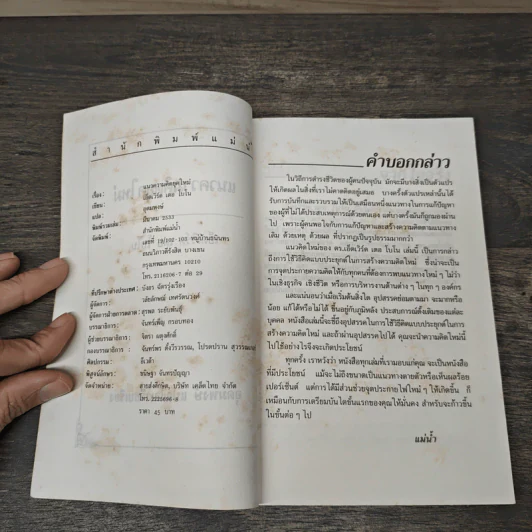 สำนักพิมพ์แม่น้ำ
เรื่อง : แนวความคิดจุดใหม่
เขียน : เอ็ดเวิร์ด เดอ โบโน
แปล :
พิมพ์รวมเล่ม : มีนาคม 2533
จัดพิมพ์ : สำนักพิมพ์แม่น้ำ
เลขที่ 19/102-103 หมู่บ้าน
ถนนวิภาวดีรังสิต บางเขน
กรุงเทพมหานคร 10210
โทร. 2116206-7 ต่อ 29
ที่ปรึกษาต่างประเทศ : บังอร ฉัตรรุ่งเรือง
ผู้จัดการ :
ผู้จัดการฝ่ายการตลาด :
บรรณาธิการ : จันทร์เพ็ญ
ผู้ช่วยบรรณาธิการ : จิตรา
กองบรรณาธิการ :
ศิลปกรรม :
พิสูจน์อักษร :
จัดจำหน่าย : สายส่งศึกษิต, บริษัท เคล็ดไทย จำกัด
โทร. 2225698-9
ราคา 45 บาท
คำบอกกล่าว
ในวิถีการดำรงชีวิตของผู้คนปัจจุบัน มักจะมีบางสิ่งเป็นตัวแปร
ให้เกิดผลในสิ่งที่เราไม่คาดคิดอยู่เสมอ บางครั้งตัวแปรเหล่านั้นได้
รับการบันทึกและรวบรวมให้เป็นเสมือนหนึ่งแนวทางในการแก้ปัญหา
ของผู้ที่ไม่ได้ประสบเหตุการณ์ด้วยตนเอง แต่บางครั้งมันก็ถูกมองผ่าน
ไป เพราะผู้คนพอใจกับการแก้ปัญหาและสร้างความคิดตามแนวทาง
เดิม ด้วยเหตุ ด้วยผล ที่ปรากฏเป็นรูปธรรมมากกว่า
แนวคิดใหม่ของ ดร.เอ็ดเวิร์ด เดอ โบโน เล่มนี้ เป็นการกล่าว
ถึงการใช้วิธีคิดแบบประยุกต์ในการสร้างความคิดใหม่ ซึ่งน่าจะเป็น
การจุดประกายความคิดให้กับทุกคนที่ต้องการพบแนวทางใหม่ ๆ ไม่ว่า
ในเชิงธุรกิจ เชิงชีวิต หรือการบริหารงานด้านต่าง ๆ ในทุก ๆ องค์กร
และแน่นอนว่าเมื่อเริ่มต้นสิ่งใด อุปสรรคย่อมตามมา จะมากหรือ
น้อย แก้ได้หรือไม่ได้ ขึ้นอยู่กับภูมิหลัง ประสบการณ์ดั้งเดิมของแต่ละ
บุคคล หนังสือเล่มนี้จะชี้ถึงอุปสรรคในการใช้วิธีคิดแบบประยุกต์ในการ
สร้างความคิดใหม่ และถ้าผ่านอุปสรรคไปได้ คุณจะนำความคิดใหม่นี้
ไปใช้อย่างไรจึงจะเกิดประโยชน์
ทุกครั้ง เราหวังว่า หนังสือทุกเล่มที่เรามอบแก่คุณ จะเป็นหนังสือ
ที่มีประโยชน์ แม้จะไม่ถึงขนาดเป็นแนวทางตายตัวหรือเห็นผลร้อย
เปอร์เซ็นต์ แต่การได้มีส่วนช่วยจุดประกายไฟใหม่ ๆ ให้เกิดขึ้น ก็
เหมือนกับการเตรียมบันไดขั้นแรกของคุณให้มั่นคง สำหรับจะก้าวขึ้น
ในขั้นต่อ ๆ ไป
แม่น้ำ